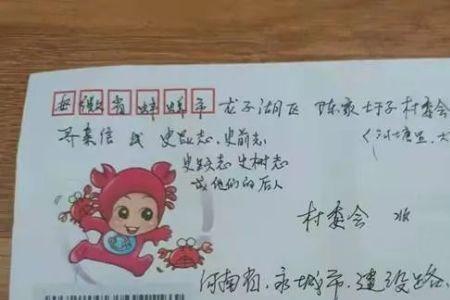 安徽省蚌埠市 龙子湖区 陈家圩子村委会
寻亲信 找 史昌志、史前志
史纹志 史树志
或他们的后人
村委会 收
河南省、永城市、建设路